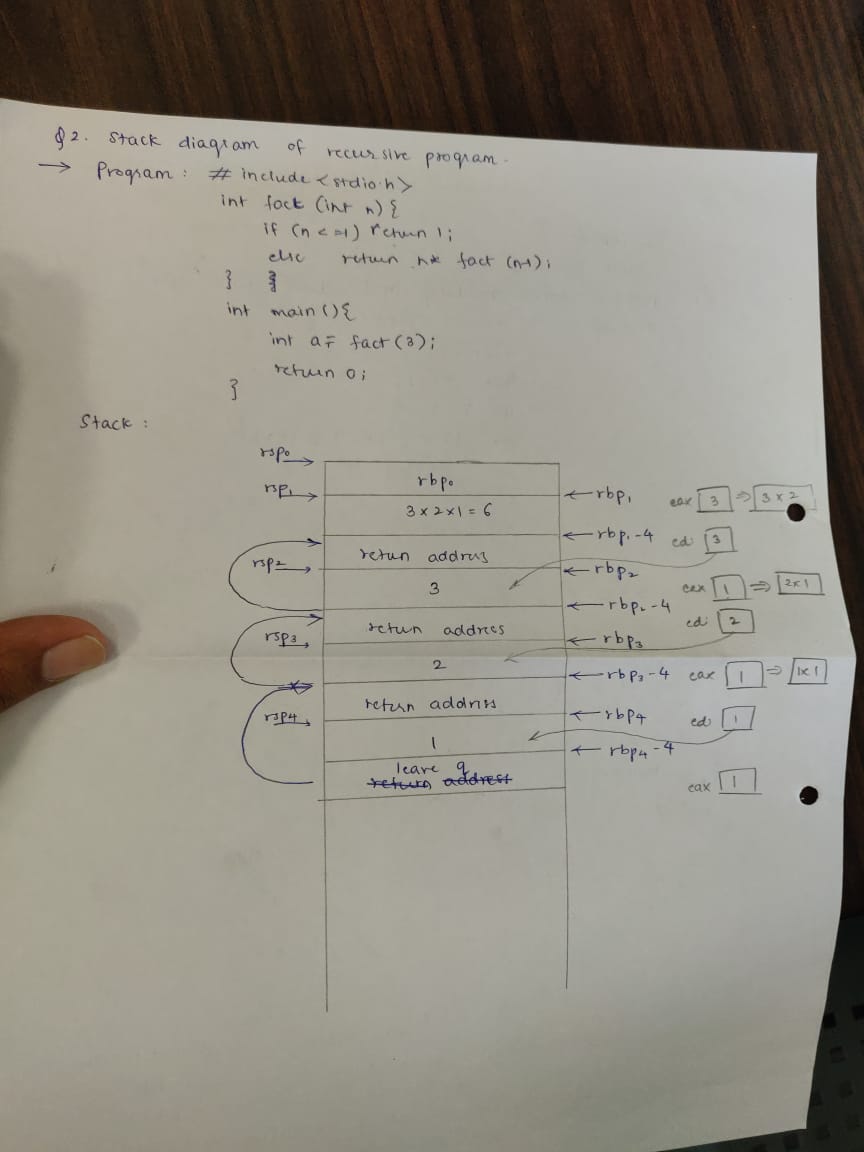 Q2. Stack diagram of recursive program.
→ Program: # include <stdio.h>
int fact (int n) {
if (n <=1) return 1;
else return n* fact (n-1);
} }
int main () {
int a = fact (3);
return 0;
}
Stack :
rsp0
rbp0
rsp1
rbp1
eax 3 ⇒ 3 x 2
3 x 2 x 1 = 6
rbp1-4 edi 3
return address
rsp2
rbp2
3
eax 1 ⇒ 2x1
rbp2-4
edi 2
return address
rsp3
rbp3
2
rbp3-4 eax 1 ⇒ 1x1
return address
rsp4
rbp4 edi 1
1
rbp4-4
leave q
return address
eax 1